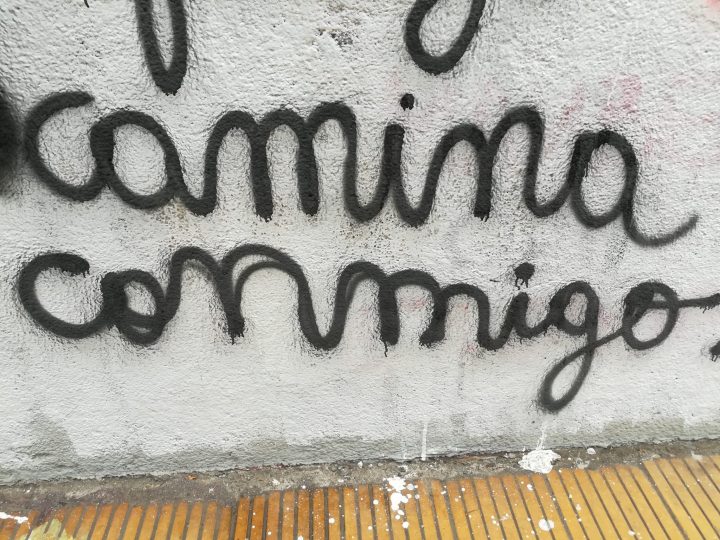 camina
conmigo